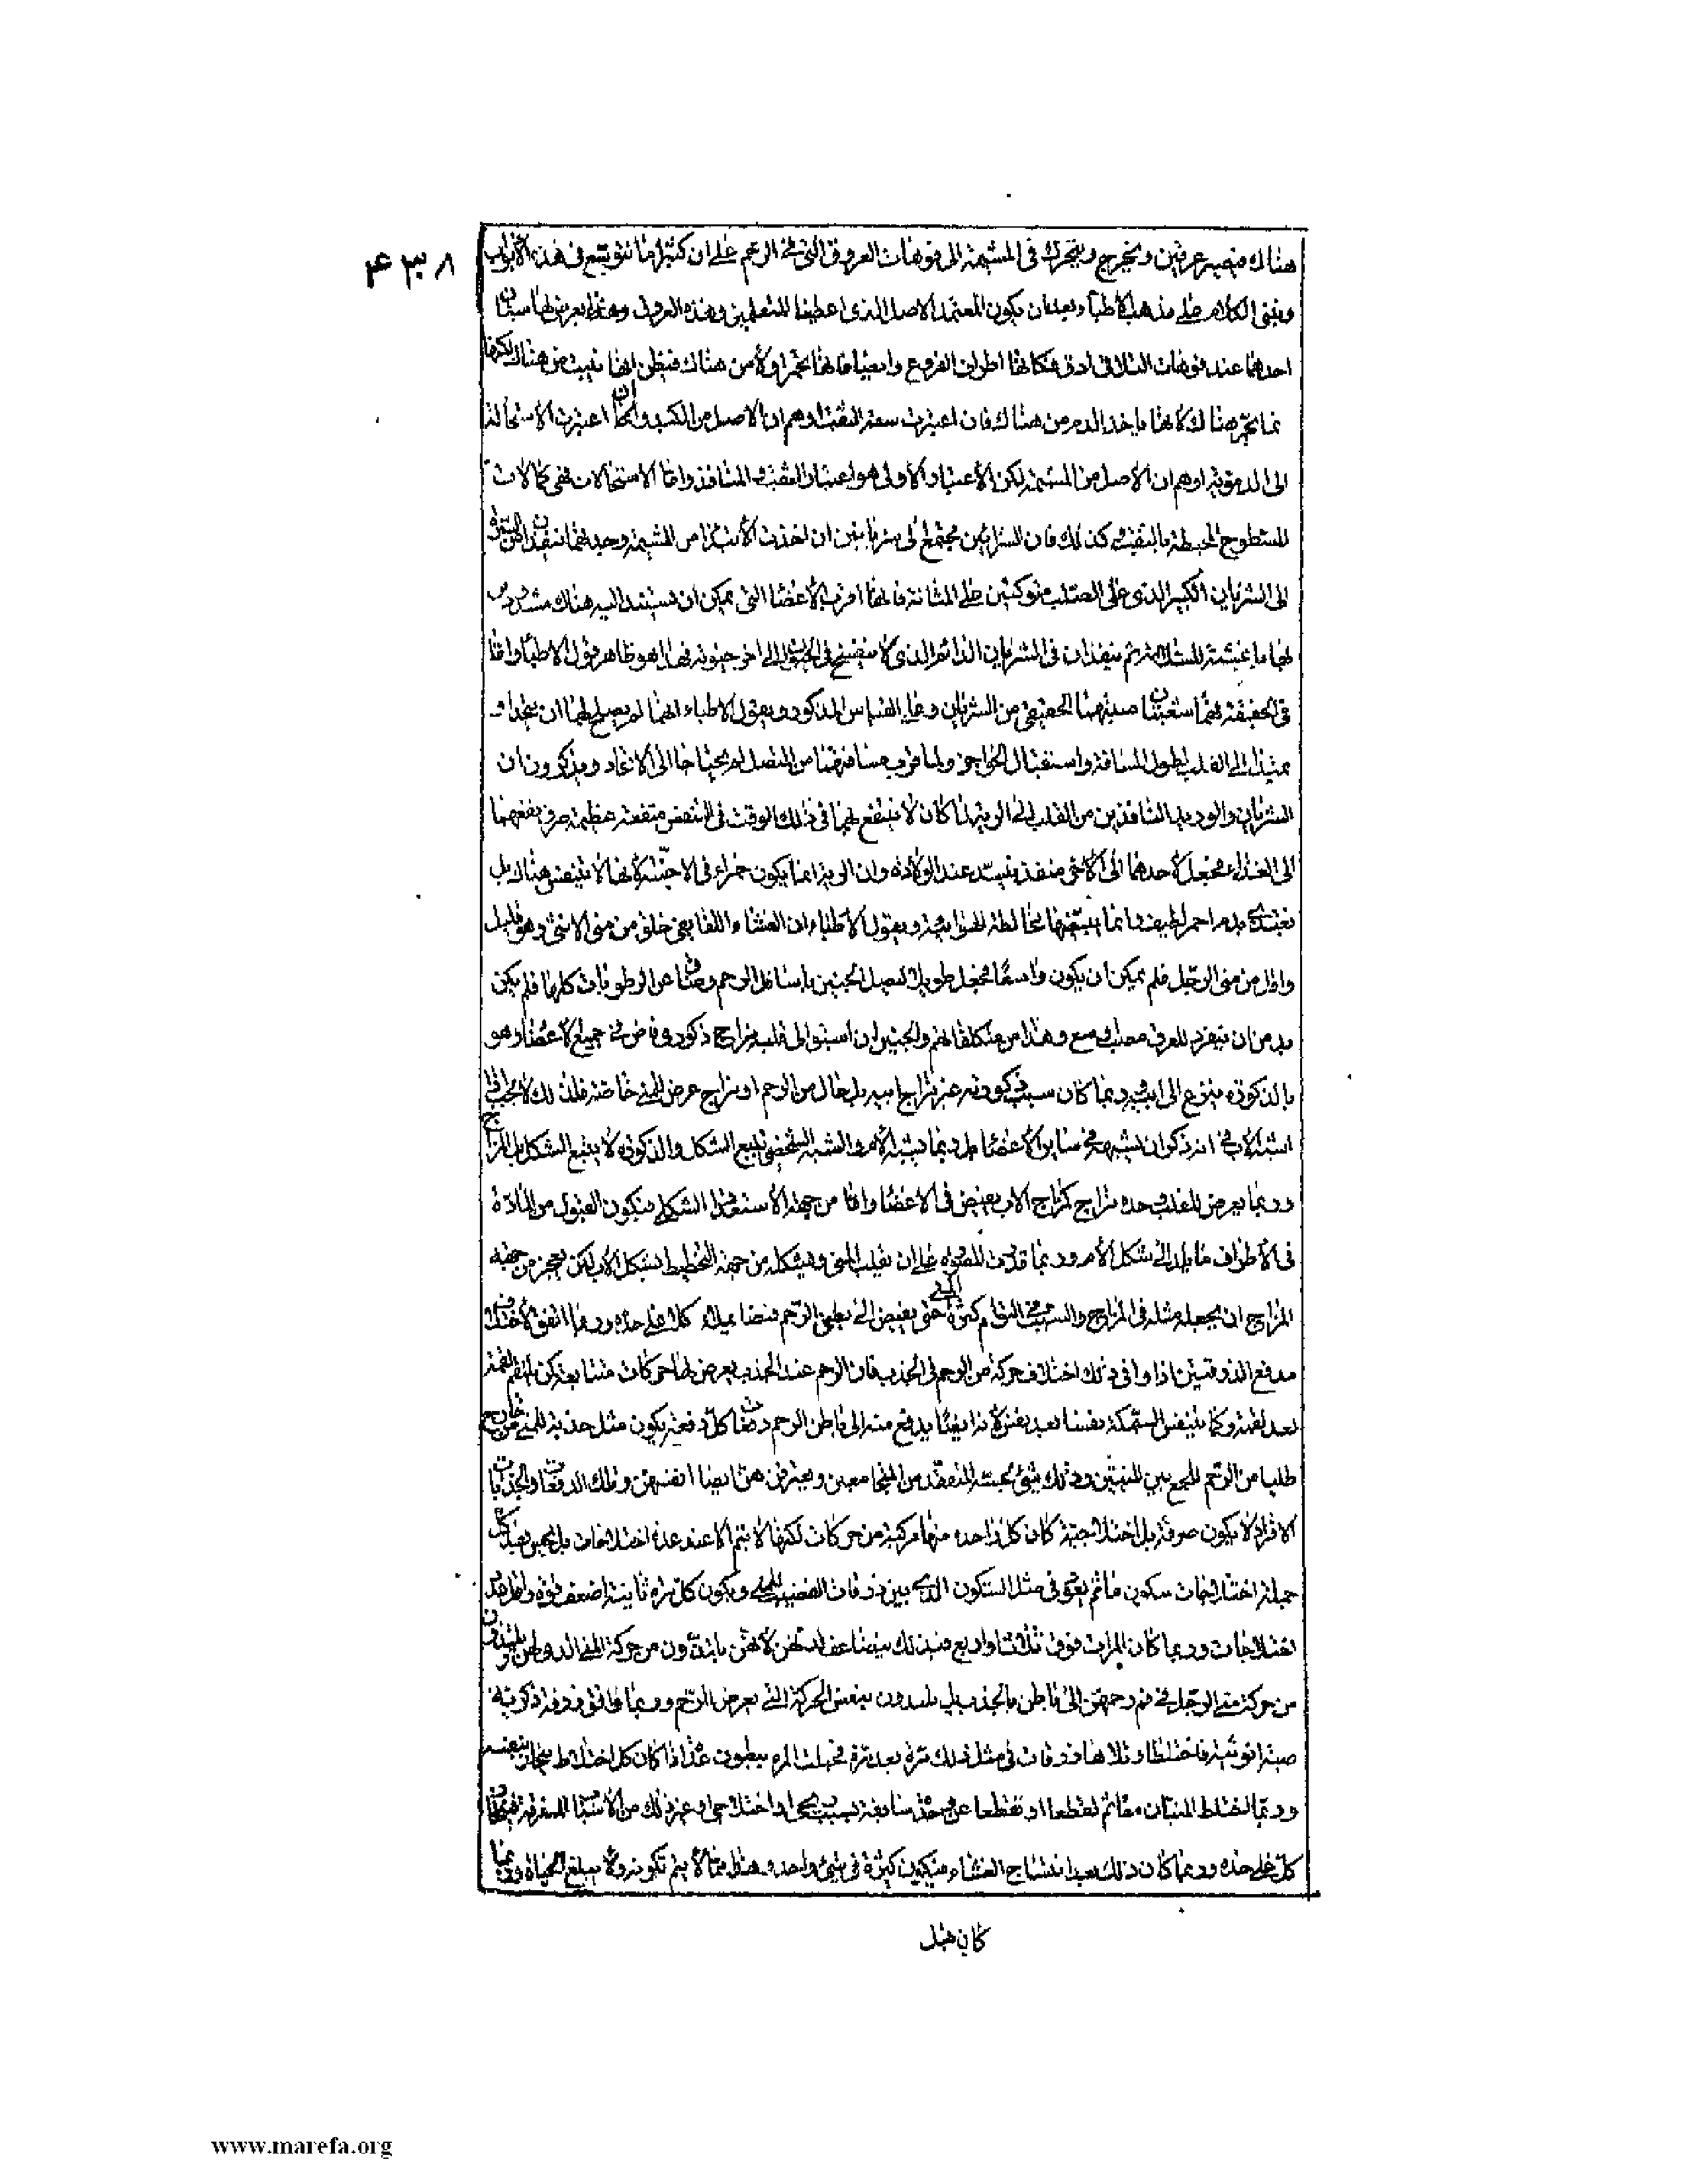 ۴۳۸
هناك فيصير عرقين ويخرج ويتحرك في المشيمة الى فوهات العروق التي في الرحم على ان كثيرا ما نتوسع في هذه الابواب
ونبنى الكلام على مذهب الاطباء وبعد ان يكون المعتمد الاصل الذى اعطينا للمتعلمين وهذه العروق وهذا يعرض لها سببان
احدهما عند فوهات التلاقى ادق فكانها اطراف الفروع وايضا فانها تحمر اولا من هناك فيظن انها نبتت من هناك لكنها
انما تحمر هناك لانها ياخذ الدم من هناك فان اعتبرت سعة الثقب اوهم ان الاصل من الكبد وان اعتبرت الاستحالة
الى الدموية اوهم ان الاصل من المشيمة لكن الاعتبار الاولى هو اعتبار الثقب والمنافذ واما الاستحالات فهى كمالات
للسطوح المحيطة بالثقب كذلك فان الشرايين يجتمع الى شريانين ان اخذت الابتداء من المشيمة وجدتهما ينفذان من السرة
الى الشريان الكبير الذى على الصلب متوكئين على المثانة فانها اقرب الاعضاء التى يمكن ان يستند اليه هناك مشدودين
بها باغشية للسلامة ثم ينفذان في الشريان الدائم الذى لا ينفسخ في الحيوان الى اخر حيوته فهذا هو ظاهر قول الاطباء واما
في الحقيقة فهما شعبتان منبتهما الحقيقى من الشريان وعلى القياس المذكور ويقول الاطباء انهما لم يصلح لهما ان يتحدا و
يمتدا الى القلب لطول المسافة واستقبال الحواجز ولما قرب مسافتهما من المتصل لم يحتاجا الى الاتحاد ويذكرون ان
الشريان والوريد النافذين من القلب الى الرية لما كان لا ينتفع بهما في ذلك الوقت في التنفس منفعة عظيمة صرف نفعهما
الى الغذاء فجعل لاحدهما الى الاخر منفذ ينسد عند الولادة وان الرية انما يكون حمراء في الاجنة لانها لا يتنفس هناك بل
تغتذى بدم احمر لطيف وانما يبيضها مخالطة الهوائية ويقول الاطباء ان الغشاء اللفايفى خلق من منى الانثى وهو قليل
واقل من منى الرجل فلم يمكن ان يكون واسعا فجعل طويلا ليصل الجنين باسافل الرحم وضاق عن الرطوبات كلها فلم يكن
بد من ان يفرد للعرق مصب واسع وهذا من متكلفاتهم والجنين ان اسبق الى قلبه مزاج ذكورى فاض في جميع الاعضاء وهو
بالذكورة ينزع الى ابيه وربما كان سبب ذكورته غير مزاج ابيه بل حال من الرحم او مزاج عرض للمنى خاصة فلذلك لا يجب اذا
اشبه الاب في انه ذكر ان يشبهه في ساير الاعضاء بل ربما يشبه الام والشبه الشخصى يتبع الشكل والذكورة لا يتبع الشكل بل المزاج
وربما يعرض للقلب وحده مزاج كمزاج الاب يفيض في الاعضاء واما من جهة الاستعداد الشكلى فيكون القبول من المادة
في الاطراف مايلا الى شكل الام وربما قدرت المصورة على ان يغلب المنى ويشكله من جهة التخطيط بشكل الاب لكن يعجز من جهة
المزاج ان يجعله مثله في المزاج والسبب في التوام كثرة المنى حتى يفيض الى بطنى الرحم فيضا يملاء كلا على حده وربما اتفق لاختلاف
مدفع الذوقتين اذا وافى ذلك اختلاف حركة من الرحم في الجذب فان الرحم عند الجذب يعرض لها حركات متتابعة كمن يلتقم لقمة
بعد لقمة وكما يتنفس السمكة نفسا بعد نفس لانه ايضا يدفع منه الى باطن الرحم دفعا كل دفعة يكون مثل جذبة للمنى من خارج
طلبا من الرحم للجمع بين المنيين وذلك شىء يحسه المتفقد من المجامعين ويعترفن هن ايضا انفسهن وتلك الدفعات والجذبات
الافراد لا يكون صرفة بل اختلاجية كان كل واحدة منها مركبة من حركات لكنها لا يتم الا عند عدة اختلاجات بل يحس بعد كل
جملة اختلاجات سكون ما ثم يعود في مثل السكون الذى بين زرقات القضيب للمنى ويكون كل مرة ثانية اضعف قوة واقل عدد
اختلاجات وربما كان المرات فوق ثلث او اربع فبذلك يتضاعف لذتهن لانهن يلتذون من حركة المنى الذى لهن ويلتذون
من حركة منى الرجل في فم رحمهن الى باطن بالجذب بل يلتذون بنفس الحركة التى يعرض للرحم وربما وافق زرقة ذكورية
صبة انوثية فاختلطا وتلاها زرقات في مثل ذلك مرة بعد مرة فحملت المرءة ببطون عدة اذا كان كل اختلاط ينحاز بنفسه
وربما اختلط المنيان معا ثم تقطعا او تقطعا عن وحدة سابقة بسبب ريحى او اختلاجى او غير ذلك من الاسباب المفرقة فينحاز
كل على حده وربما كان ذلك بعد انتساج الغشاء فيكون كثيرة في شىء واحد وهذا مما لا يتم تكونه ولا يبلغ الحياة وربما
كان قبل
www.marefa.org